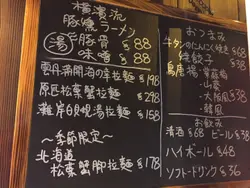 横濱流
豚燻ラーメン
湯 豚骨 $88
味噌 $88
雲丹満開海の幸拉麺 $198
原尻松葉蟹拉麺 $298
灘岸白蜆湯拉麺 $158
〜季節限定〜
北海道
松葉蟹腳拉麺 $178
おつまみ
牛タンのにんにく焼き $68
餃子 $38
鳥唐揚 $48
・山葵
・大阪風 $38
・韓風
お飲み
清酒 $68 ビール $38
ハイボール $48
ソフトドリンク $36